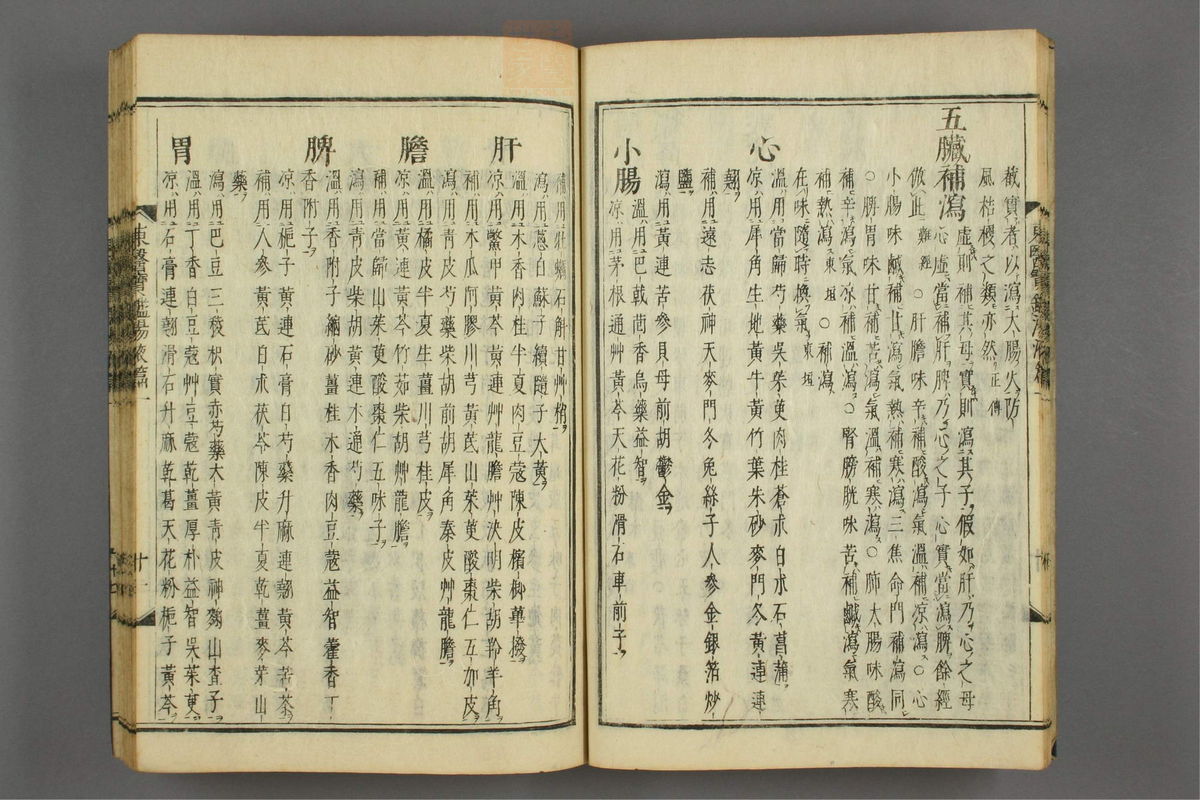 截實者以瀉大腸火防
風桔梗之類亦然正傳
五臟補瀉
虛則補其母實則瀉其子假如肝乃心之母
心虛當補肝脾乃心之子心實當瀉脾餘經
倣此難經○肝膽味辛補酸瀉氣溫補凉瀉○心
小腸味鹹補甘瀉氣熱補寒瀉三焦命門補瀉同
○脾胃味甘補苦瀉氣溫補寒瀉○肺大腸味酸
補辛瀉氣凉補溫瀉○腎膀胱味苦補鹹瀉氣寒
補熱瀉東垣○補瀉
在味隨時換氣東垣
心
溫用當歸芍藥吳茱萸肉桂蒼朮白朮石菖蒲
凉用犀角生地黃牛黃竹葉朱砂麥門冬黃連連
翹
補用遠志茯神天麥門冬兔絲子人參金銀箔炒
鹽
瀉用黃連苦參貝母前胡鬱金
小腸
溫用巴戟茴香烏藥益智
凉用茅根通艸黃芩天花粉滑石車前子
補用牡蠣石斛甘艸梢
瀉用葱白蘇子續隨子大黃
肝
溫用木香肉桂半夏肉豆蔻陳皮檳榔蓽撥
凉用鱉甲黃芩黃連艸龍膽艸決明柴胡羚羊角
補用木瓜阿膠川芎黃芪山茱萸酸棗仁五加皮
瀉用靑皮芍藥柴胡前胡犀角秦皮艸龍膽
膽
溫用橘皮半夏生薑川芎桂皮
凉用黃連黃芩竹茹柴胡艸龍膽
補用當歸山茱萸酸棗仁五味子
瀉用靑皮柴胡黃連木通芍藥
脾
溫用香附子縮砂薑桂木香肉豆蔻益智藿香丁
香附子
凉用梔子黃連石膏白芍藥升麻連翹黃芩苦茶
補用人參黃芪白朮茯苓陳皮半夏乾薑麥芽山
藥
瀉用巴豆三稜枳實赤芍藥大黃靑皮神麴山査子
胃
溫用丁香白豆蔻艸豆蔻乾薑厚朴益智吳茱萸
凉用石膏連翹滑石升麻乾葛天花粉梔子黃芩
東醫寶鑑湯液篇一
廿二